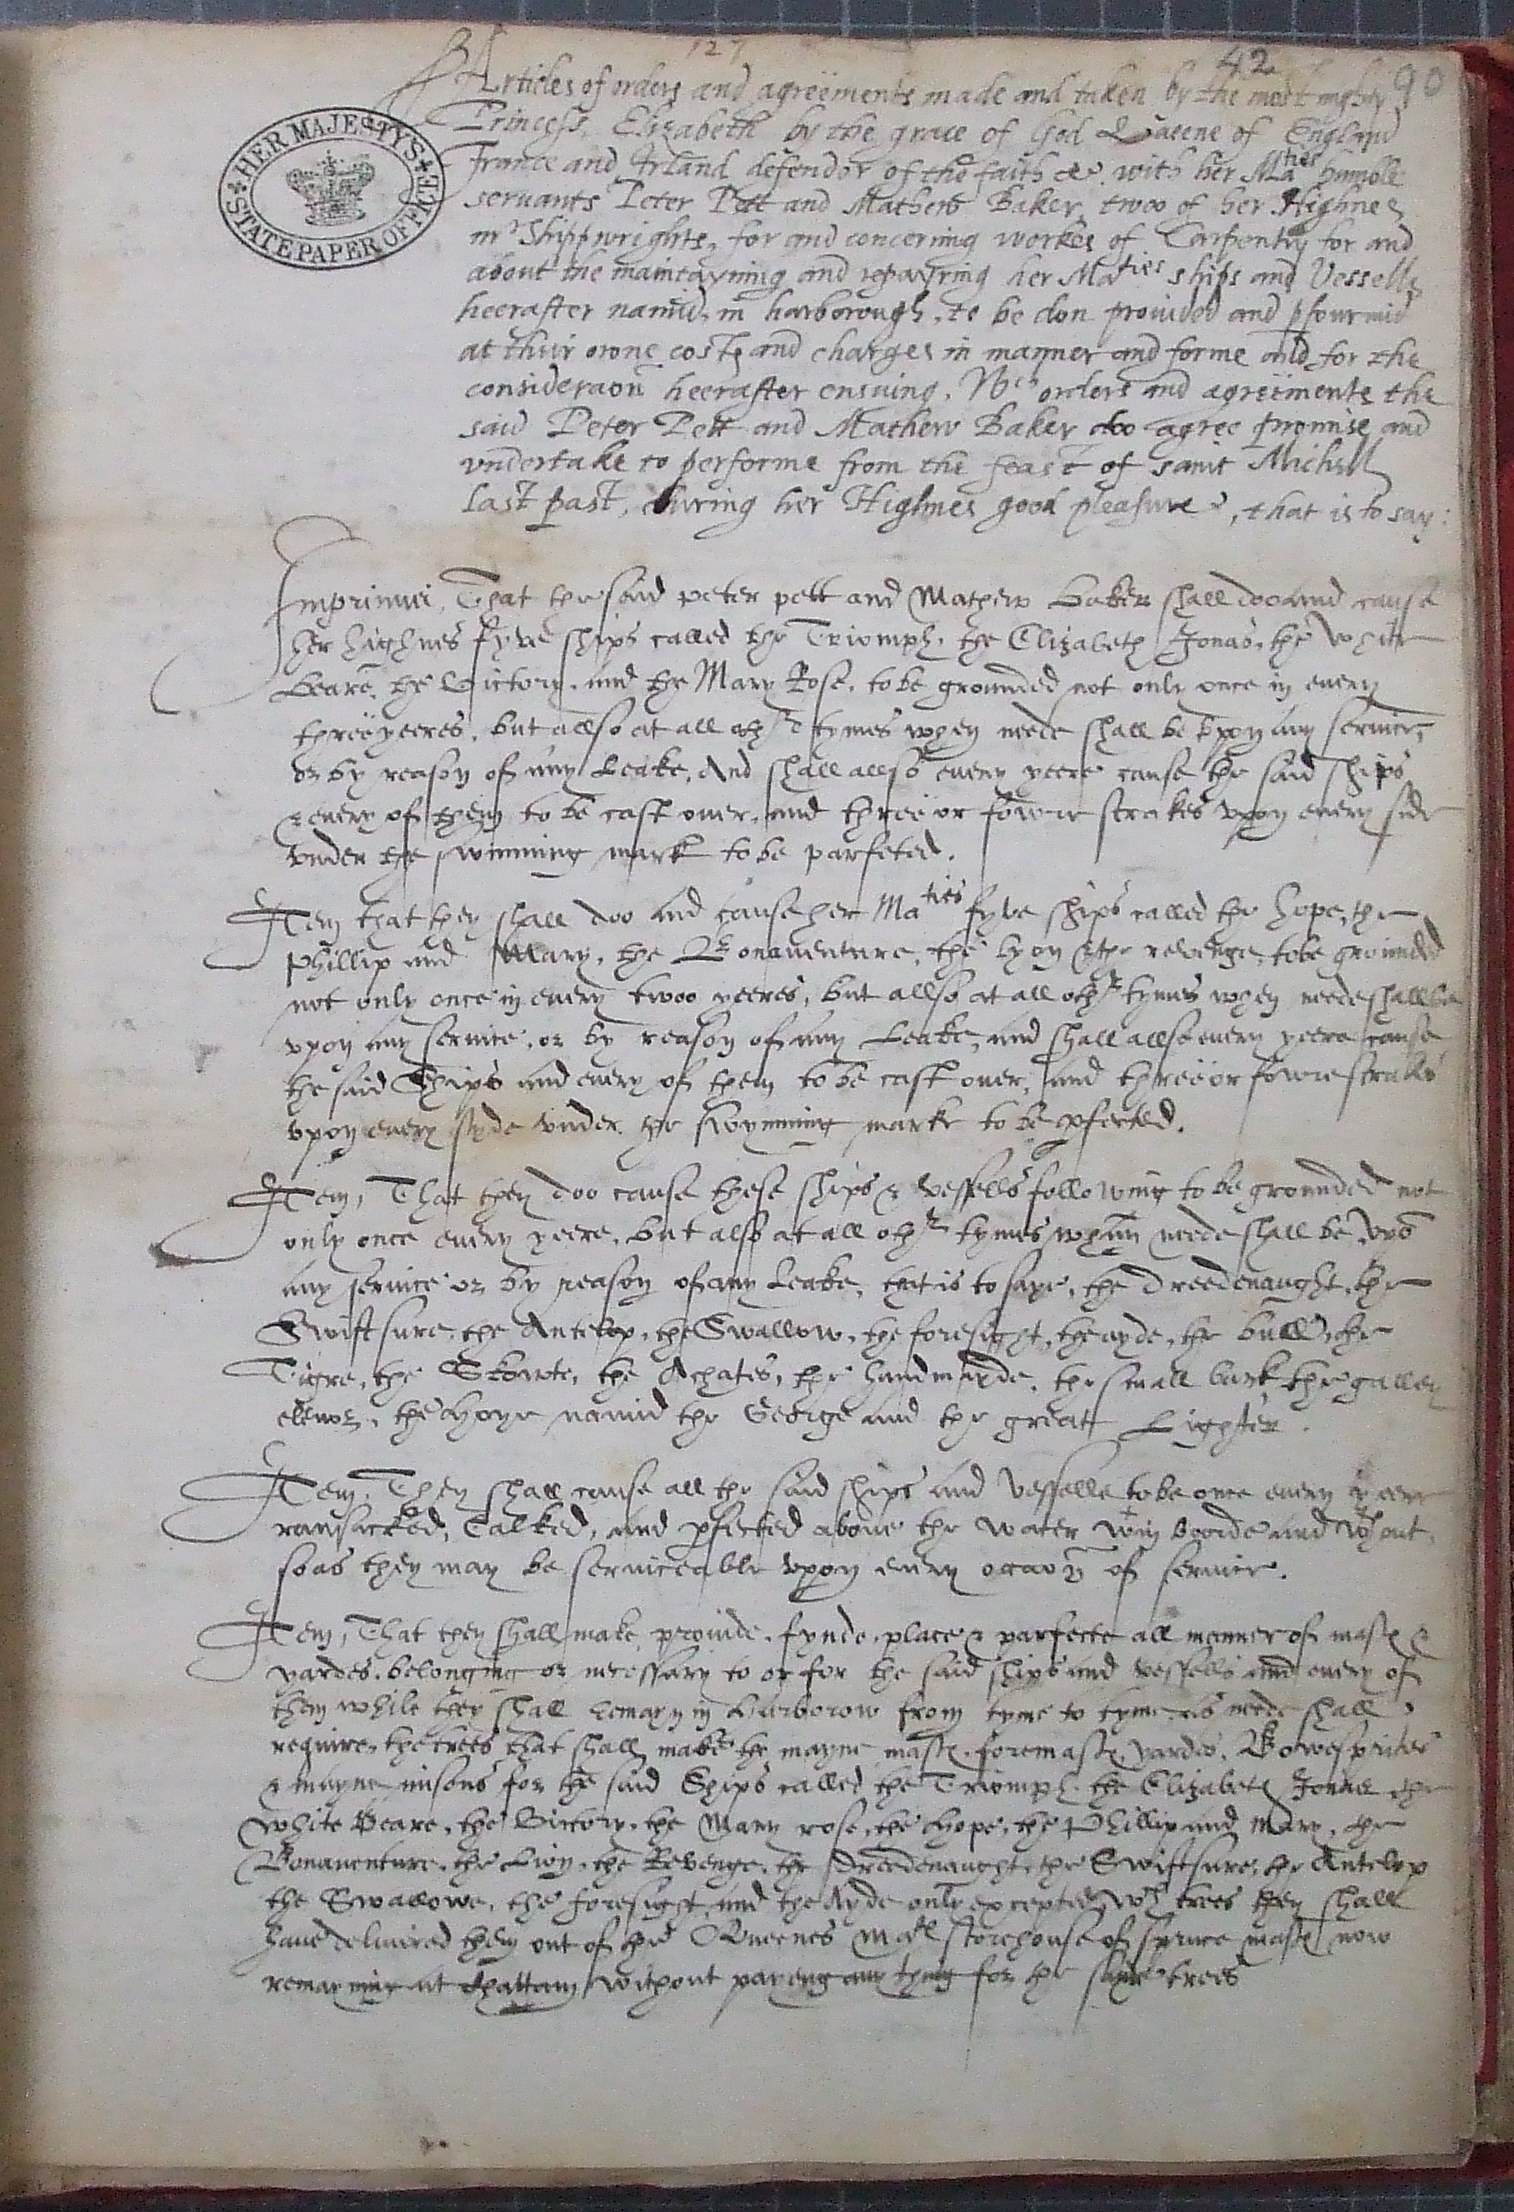 127
42
90
Articles of orders and agreements made and taken by the most mighty
Princess, Elizabeth by the grace of God Queene of England
France and Irland defendor of the faith &c. with her Ma^ties humble
servants Peter Pett and Mathew Baker, twoo of her Highnes
m^r Shippwrights, for and concerning workes of Carpentry for and
about the maintayning and repayring her Ma^ties ships and Vessells
heerafter namid, in harborough, to be don provided and pfourmid
at their owne costs and charges in manner and forme and for the
consideraon heerafter ensuing. W^ch orders and agreements the
said Peter Pett and Mathew Baker doo agree promise and
vndertake to performe from the feast of saint Michell
last past, during her Highnes good pleasure, that is to say:
HER MAJESTY'S
STATE PAPER OFFICE
Imprimis, That the said Peter Pett and Mathew Baker shall doo and cause
her highnes fyve ships called the Triomph, the Elizabeth Jonas, the White
Beare, the Victory, and the Mary Rose, to be grounded not only once in every
three yeeres, but allso at all oth^r tymes when neede shall be vpon any service,
or by reason of any Leake, And shall allso every yeere cause the said ships
& every of them to be cast over, and three or fowre strakes vpon every side
vnder the swimming mark to be parfeted.
Item that they shall doo and cause her Ma^ties fyve ships called the hope, the
Phillip and Mary, the Bonaventure, the lyon & the revenge, to be grounded
not only once in every twoo yeeres, but allso at all oth^r tymes when neede shall be
vpon any service, or by reason of any Leake, and shall allso every yeere cause
the said Ships and every of them to be cast over, and three or fowre strakes
vpon every syde vnder the swymming marke to be pfected.
Item, That they doo cause these ships & vessells following to be grounded not
only once every yeere, but also at all oth^r tymes when neede shall be vpo
any service or by reason of any Leake, that is to saye, the Dreedenaught, the
Swiftsure, the Antelop, the Swallow, the foresight, the ayde, the bull, the
Tigre, the Skowte, the Achates, the handmayde, the small bark, the galley
ellynor, the hoye namid the George and the great Lighter.
Item, They shall cause all the said ships and vessells to be once every yeere
ransacked, Calked, and pfected above the water w^tin boorde and w^tout,
so as they may be serviceable vpon every occaon of service.
Item, That they shall make, provide, fynde, place & parfecte all manner of masts &
yardes, belonging or necessary to or for the said ships and vessells and every of
them while they shall remayn in Harborow from tyme to tyme as neede shall
require, the trees that shall make the mayne masts, foremasts, yardes, Bowesprites
& mayne misons for the said Ships called the Triomph, the Elizabeth Jonas, the
White Beare, the Victory, the Mary rose, the Hope, the Phillip and Mary, the
Bonaventure, the Lion, the Revenge, the Dreedenaught, the Swiftsure, the Antelop
the Swallowe, the foresight, and the Ayde only excepted, w^ch trees they shall
have delivered them out of the Queenes Ma^ts storehouse of spruce masts now
remayning at Chattam without payeng any thing for the same trees